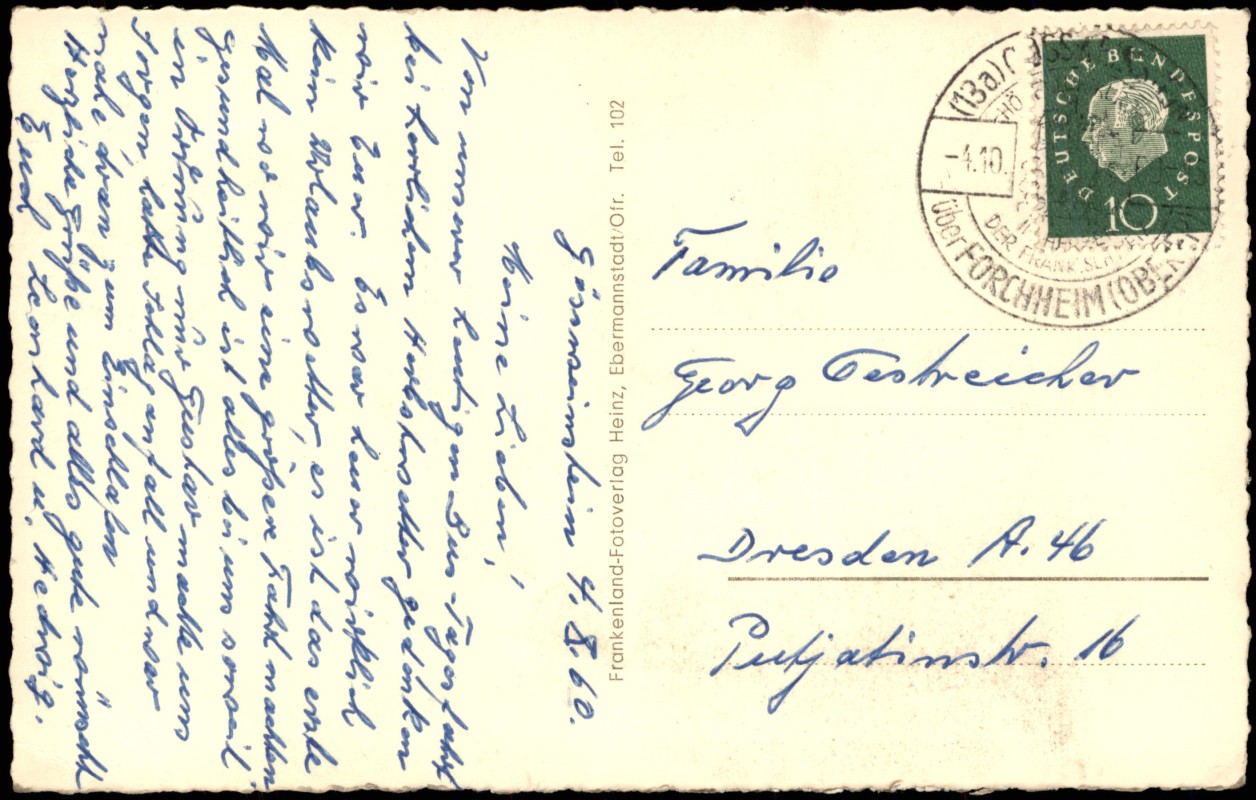 Gössweinstein 4.8.60.
Meine Lieben!
Von unserer heutigen Bus-Tagesfahrt
bei herrlichem Herbstwetter gedenken
wir Euer. Es war heuer wirklich
kein Urlaubswetter, es ist das erste
Mal wo wir eine größere Fahrt machten
gesundheitlich ist alles bei uns soweit
in Ordnung nur Gustav machte uns
Sorgen, hatte Schlaganfall und war
nahe dran zum Einschlafen
Herzliche Grüße und alles gute wünscht
Euch Leonhard u. Hedwig.
Frankenland-Fotoverlag Heinz, Ebermannstadt/Ofr. Tel. 102
DEUTSCHE BUNDESPOST
10
(13a)
-4.10.
DER FRÄNK.
über FORCHHEIM (OBERFR
Familie
Georg Oestreicher
Dresden A. 46
Putjatinstr. 16